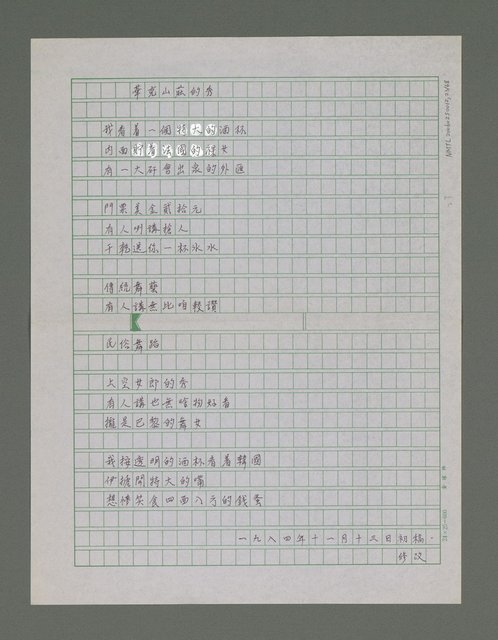 華克山莊的秀
我看着一個特大的酒杯
內面貯着法國的裸女
有一大
會出泉的外匯
門票美金貳拾元
有人喇講搶人
干乾送你一杯氷水
傳統舞藝
有人講無比咱較讚
民俗舞蹈
上空女郎的秀
有人講也無啥物好看
攏是巴黎的舞女
我捾透明的酒杯看着韓國
伊擴開特大的嘴
想
食四面八方的錢蚤
一九八四年十一月十三日初稿
修改